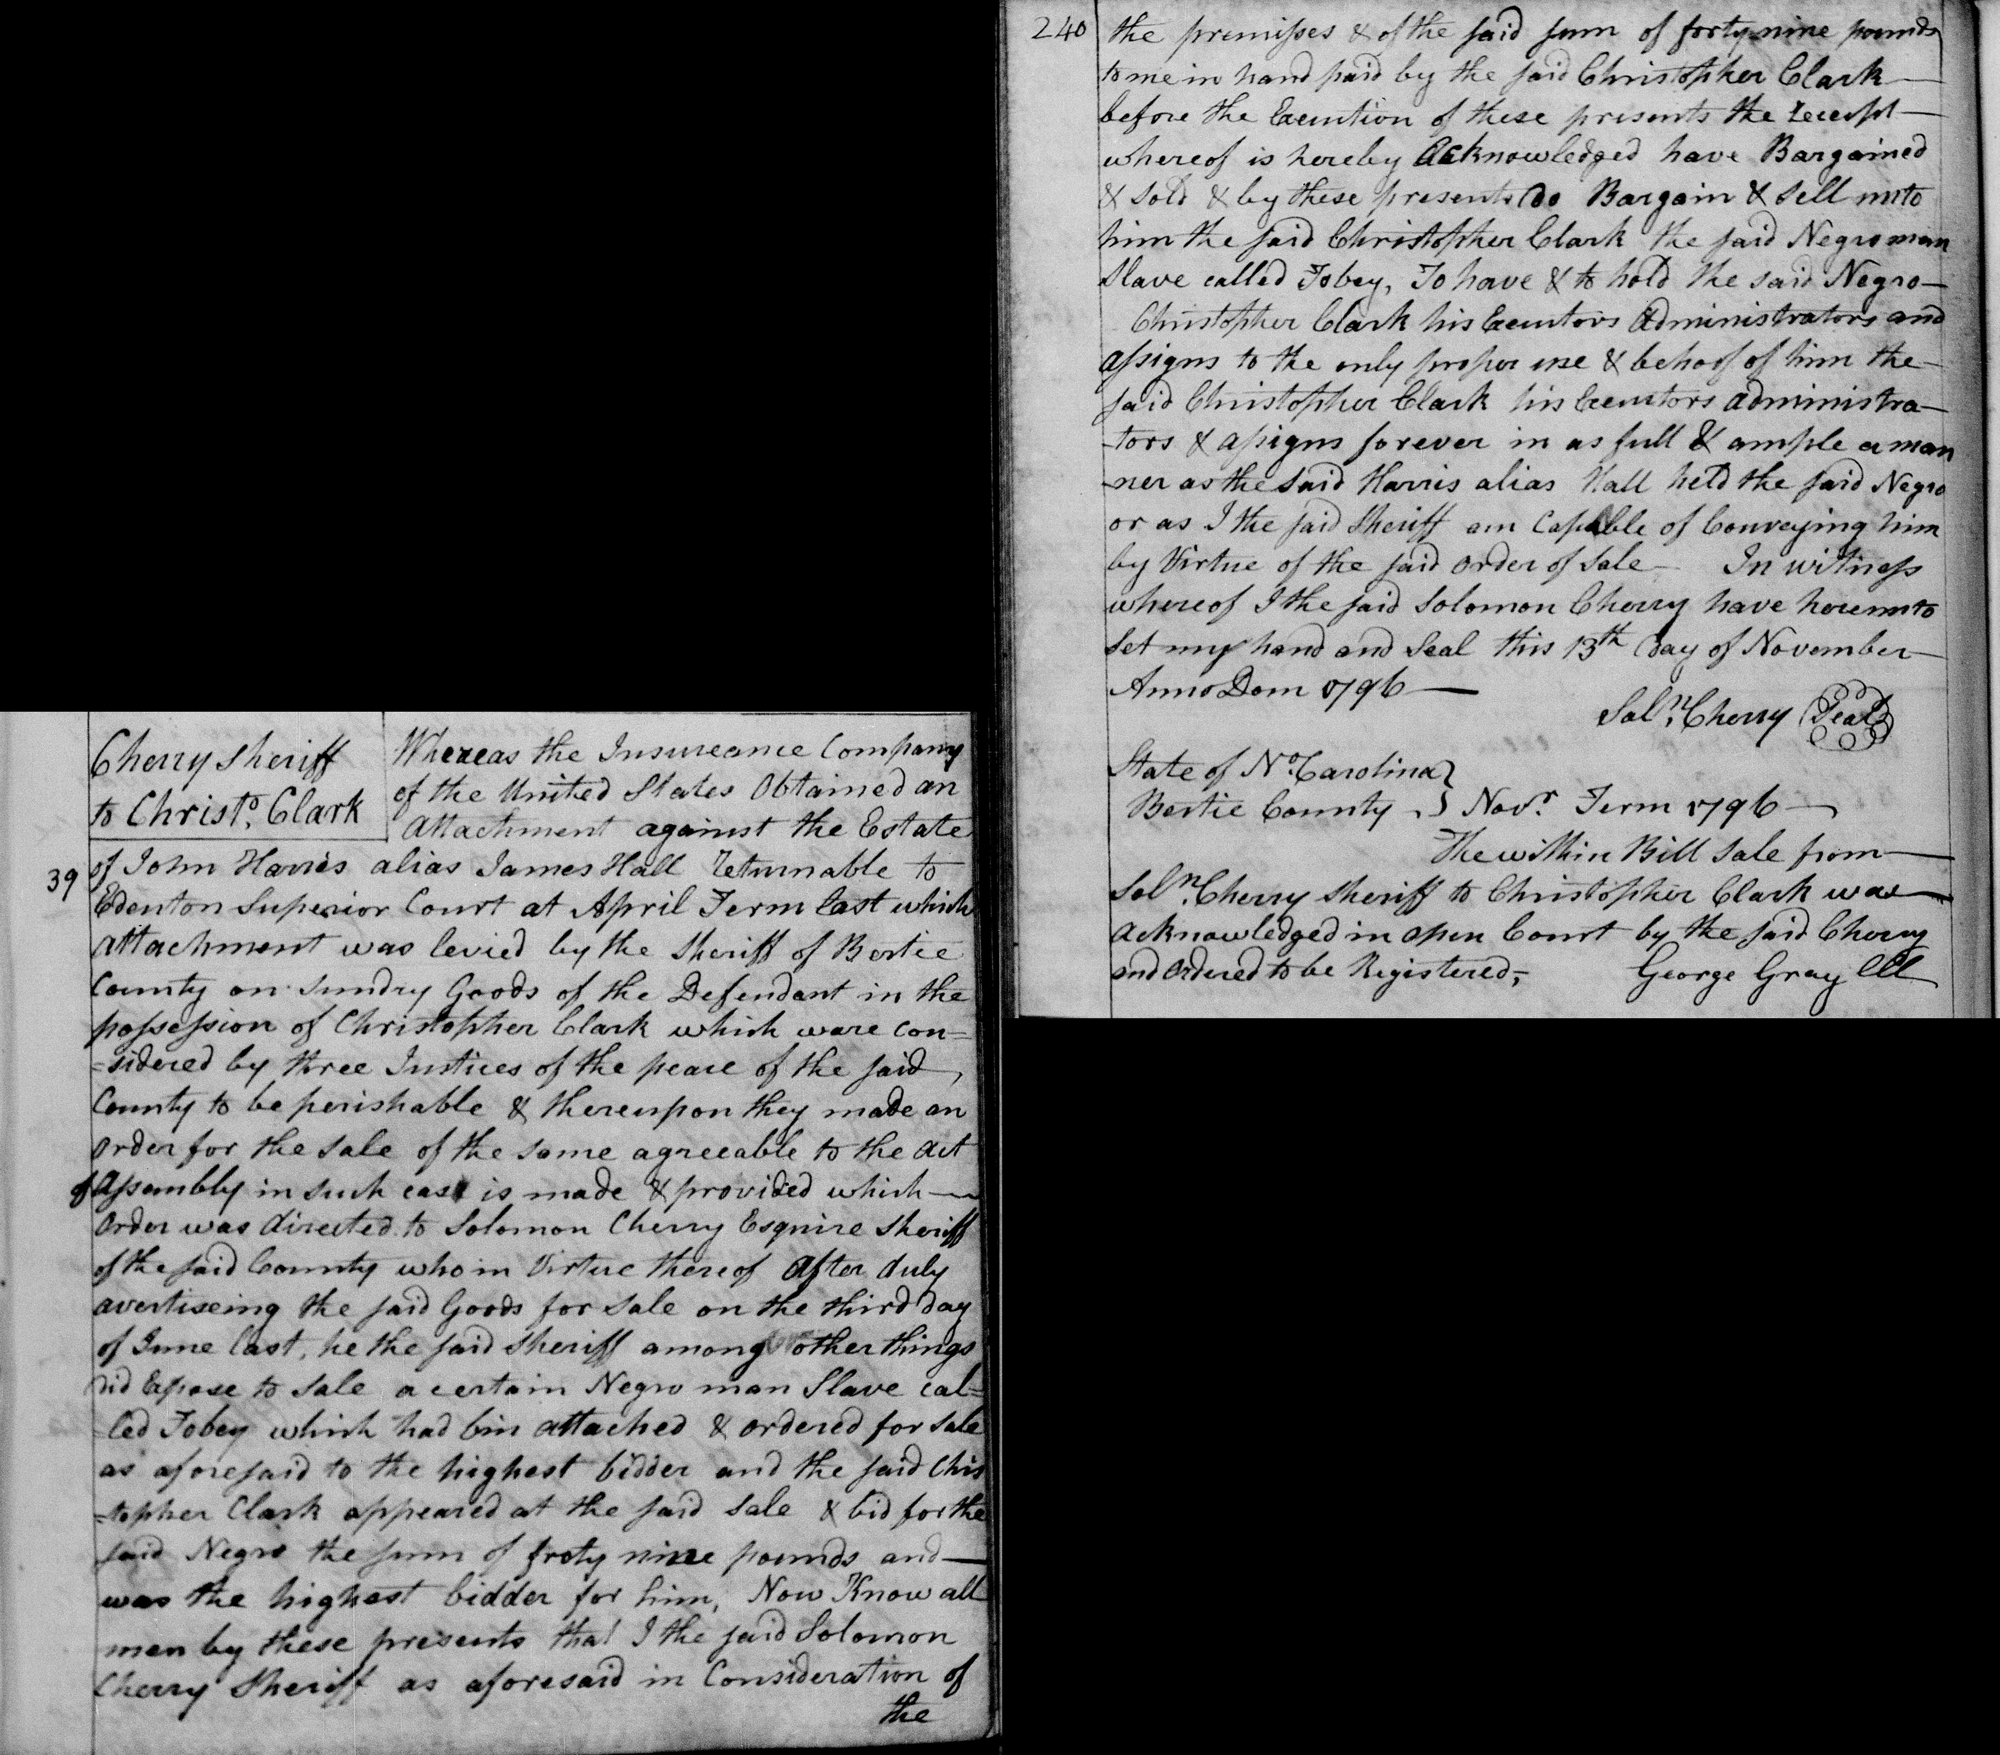 Cherry Sheriff
to Christo. Clark
Whereas the Insureance Company
of the United States Obtained an
Attachment against the Estate
39
of John Harris alias James Hall returnable to
Edenton Superior Court at April Term last which
attachment was levied by the Sheriff of Bertie
County on Sundry Goods of the Defendant in the
possession of Christopher Clark which ware con=
=sidered by three Justices of the peace of the said
County to be perishable & thereupon they made an
order for the Sale of the same agreeable to the Act
of Assembly in such case is made & provided which
order was directed to Solomon Cherry Esquire Sheriff
of the said County who in Virtue thereof After duly
avertiseing the said Goods for Sale on the third day
of June last, he the said Sheriff among other things
did Expose to Sale a certain Negro man Slave cal=
=led Tobey which had bin attached & ordered for Sale
as aforesaid to the highest bidder and the said Chris
=topher Clark appeared at the said Sale & bid for the
said Negro the sum of froty nine pounds and
was the highest bidder for him, Now Know all
men by these presents that I the said Solomon
Cherry Sheriff as aforesaid in Consideration of
the
240
the premises & of the said sum of forty nine pounds
to me in hand paid by the said Christopher Clark
before the Execution of these presents the receipt
whereof is hereby Acknowledged have Bargained
& sold & by these presents do Bargain & sell unto
him the said Christopher Clark the said Negro man
Slave called Tobey, To have & to hold the said Negro
Christopher Clark his Executors Administrators and
assigns to the only proper use & behoof of him the
said Christopher Clark his Executors administra-
-tors & assigns forever in as full & ample a man
-ner as the said Harris alias Hall held the said Negro
or as I the said Sheriff am Capable of Conveying him
by Virtue of the said order of Sale In witness
whereof I the said Solomon Cherry have hereunto
Set my hand and Seal this 13th day of November
Anno Dom 1796
Soln. Cherry Seal
State of No. Carolina }
Bertie County } Novr. Term 1796
The within Bill Sale from
Soln. Cherry Sheriff to Christopher Clark was
acknowledged in open Court by the said Cherry
and ordered to be Registered,
George Gray CCl